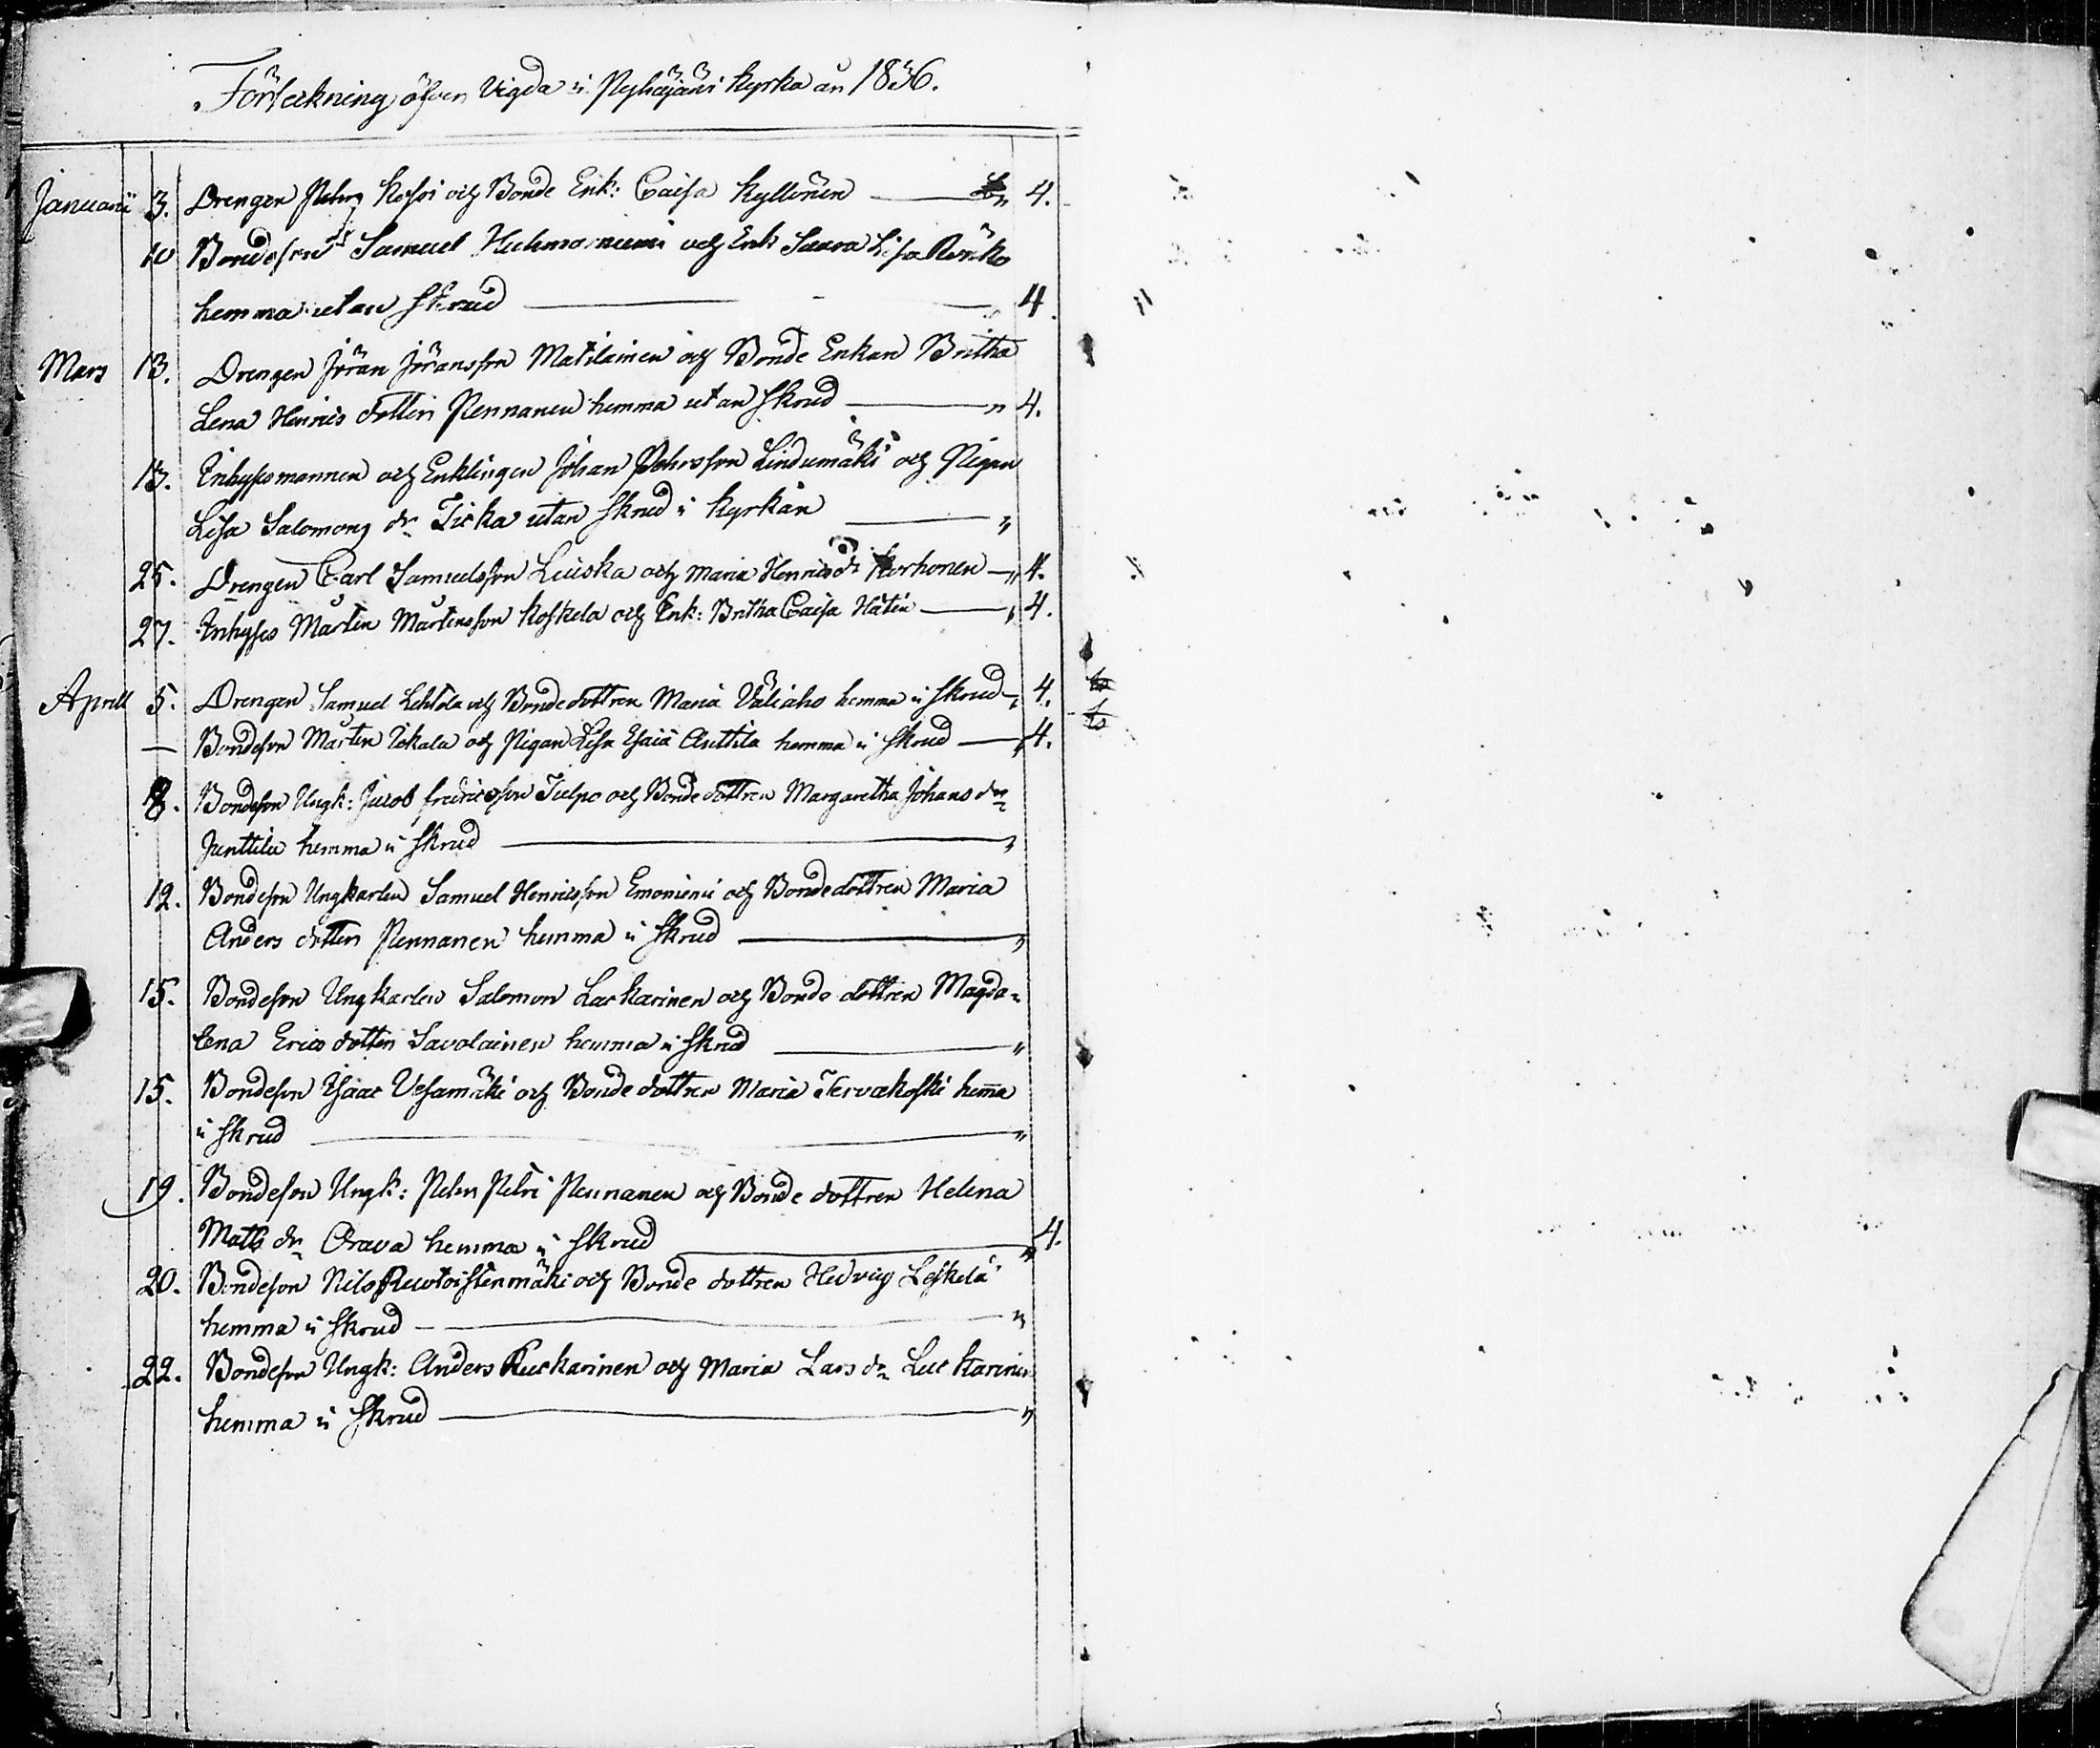 Förteckning öfver Vigda i Pyhäjärvi Kyrka år 1836.
Januarii 3. Drengen Pehr Kossi och Bonde Enk: Caisa Kyllönen — 4.
10 Bondeson Samuel Huhmarniemi och Enk Saara Lisa Rönkö
hemma utan skrud — 4
Mars 13. Drengen Jöran Jöransson Matilainen och Bonde Enkan Britha
Lena Henrics dotter Pennanen hemma utan skrud — " 4.
13. Inhysesmannen och Enklingen Johan Pehrsson Lindumäki och Pigan
Lisa Salomons dr Ticka utan skrud i kyrkan — "
25. Drengen Carl Samuelsson Leiviska och Maria Henrics dr Korhonen — " 4.
27. Inhyses Mårten Mårtensson Koskela och Enk: Britha Caisa Hätin — " 4.
Aprill 5. Drengen Samuel Lehtola och Bondedottren Maria Väliaho hemma i skrud — " 4.
— Bondeson Mårten Tikala och Pigan Lisa Esaiæ Anttila hemma i skrud — " 4.
8. Bondeson Ungk: Jacob fredricsson Tulpo och Bondedottren Margaretha Johans dr
Junttila hemma i skrud — "
12. Bondeson Ungkarlen Samuel Henricsson Emoniemi och Bondedottren Maria
Anders dotter Pennanen hemma i skrud — "
15. Bondeson Ungkarlen Salomon Lackarinen och Bonde dottren Magda-
lena Erics dotter Savolainen hemma i skrud — "
15. Bondeson Isaac Vesamäki och Bonde dottren Maria Tervakoski hem̄a
i skrud — "
19. Bondeson Ungk: Pehr Petri Pennanen och Bonde dottren Helena
Mats dr Orava hemma i skrud — " 4.
20. Bondeson Nils Ruotoistenmäki och Bonde dottren Hedvig Leskelä
hemma i skrud — "
22. Bondeson Ungk: Anders Ruckarinen och Maria Lars dr Luckarinen
hemma i skrud — "